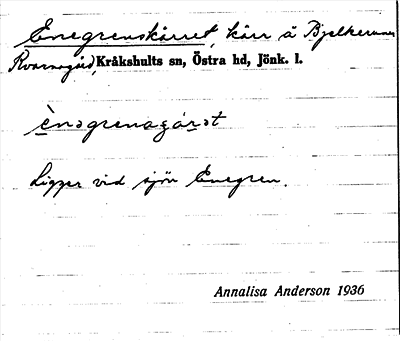 Enegrenskärret, kärr å Bjelkerums
Kvarnegård, Kråkshults sn, Östra hd, Jönk. l.
Ligger vid sjön Enegren.
Annalisa Anderson 1936